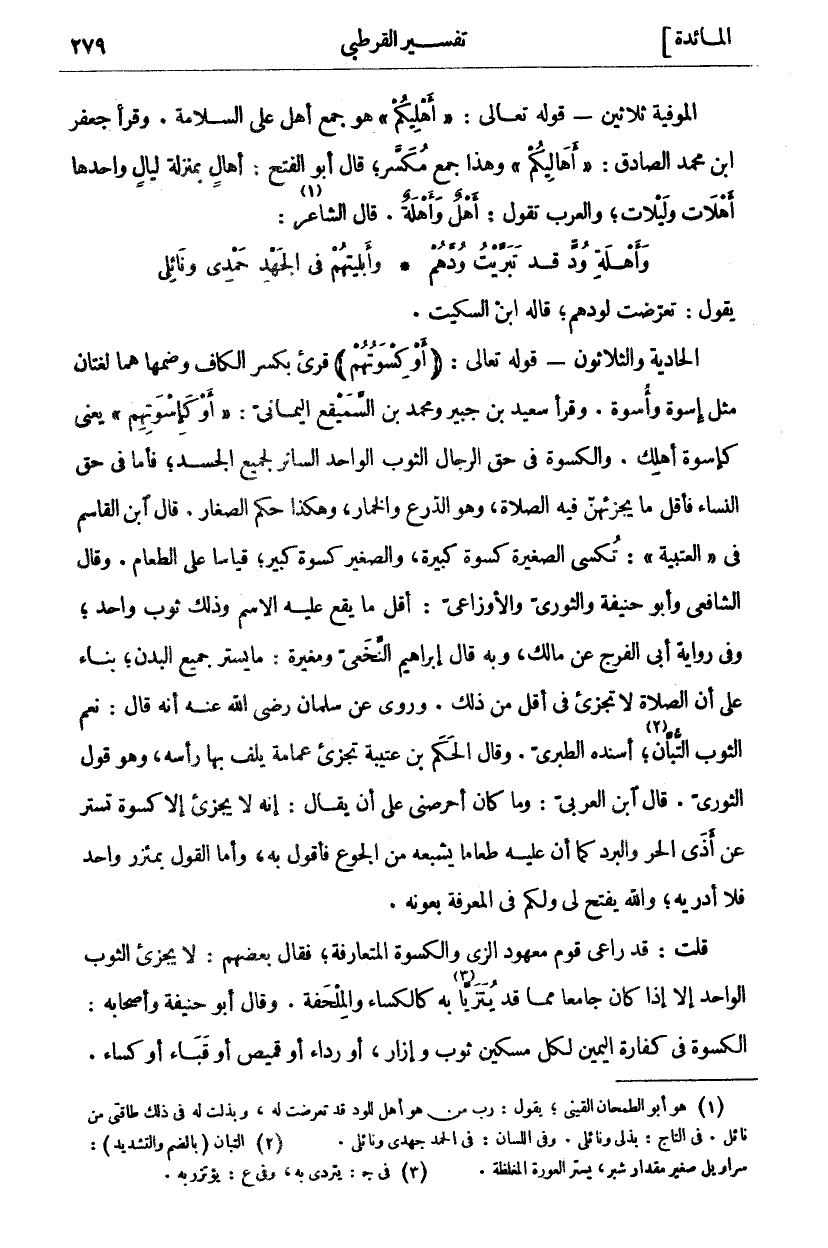 المــائدة ]
تفســـير القرطبى
٢٧٩
الموفية ثلاثين — قوله تعـالى : « أَهْلِيكُمْ » هو جمع أهل على السـلامة . وقرأ جعفر
ابن محمد الصادق : « أَهَالِيكُمْ » وهذا جمع مُكَسَّر؛ قال أبو الفتح : أهالٍ بمنزلة ليالٍ واحدها
أَهْلَات ولَيْلات؛ والعرب تقول : أَهْلٌ وَأَهْلَةٌ . قال الشاعر (١) :
وَأَهْـلَةِ وُدٍّ قـد تَبَرَّيْتُ وُدَّهُمْ * وأَبليتهُمْ فى الجَهْدِ حَمْدِى ونَائِلِى
يقول : تعرّضت لودهم؛ قاله ابن السكيت .
الحادية والثلاثون — قوله تعالى : ﴿ أَوْ كِسْوَتُهُمْ ﴾ قرئ بكسر الكاف وضمها هما لغتان
مثل إسوة وأُسوة . وقرأ سعيد بن جبير ومحمد بن السَّمَيْقع اليمـانىّ : « أَوْ كَإِسْوَتِهِم » يعنى
كإسوة أهلك . والكسوة فى حق الرجال الثوب الواحد الساتر لجميع الجسـد؛ فأما فى حق
النساء فأقل ما يجزئهنّ فيه الصلاة، وهو الدرع والخمار، وهكذا حكم الصغار . قال آبن القاسم
فى « العتبية » : تُكسى الصغيرة كسوة كبيرة، والصغير كسوة كبير؛ قياسا على الطعام . وقال
الشافعى وأبو حنيفة والثورىّ والأوزاعىّ : أقل ما يقع عليـه الاسم وذلك ثوب واحد ؛
وفى رواية أبى الفرج عن مالك، وبه قال إبراهيم النَّخَعىّ ومغيرة : مايستر جميع البدن؛ بنـاء
على أن الصلاة لا تجزئ فى أقل من ذلك . وروى عن سلمان رضى الله عنـه أنه قال : نعم
الثوب التُّبَّان (٢)؛ أسنده الطبرىّ . وقال الحَكَم بن عتيبة تجزئ عمامة يلف بها رأسه، وهو قول
الثورىّ . قال آبن العربىّ : وما كان أحرصنى على أن يقـال : إنه لا يجزئ إلا كسوة تستر
عن أَذَى الحر والبرد كما أن عليـه طعاما يشبعه من الجوع فأقول به، وأما القول بمئزر واحد
فلا أدريه؛ والله يفتح لى ولكم فى المعرفة بعونه .
قلت : قد راعى قوم معهود الزى والكسوة المتعارفة؛ فقال بعضهم : لا يجزئ الثوب
الواحد إلا إذا كان جامعا ممـا قد يُتَزَيَّا (٣) به كالكساء والمِلْحَفة . وقال أبو حنيفة وأصحابه :
الكسوة فى كفارة اليمين لكل مسكين ثوب و إزار ، أو رداء أو قميص أو قَبَاء أو كساء .
(١) هو أبو الطمحان القينى ؛ يقول : رب من هو أهل للود قد تعرضت له ، و بذلت له فى ذلك طاقتى من
نائل . فى التاج : بذلى ونائلى . وفى اللسان : فى الحمد جهدى ونائلى . (٢) التبان (بالضم والتشديد) :
سراويل صغير مقدار شبر، يستر العورة المغلظة . (٣) فى جـ : يتردى به ، وفى ع : يؤتزر به .